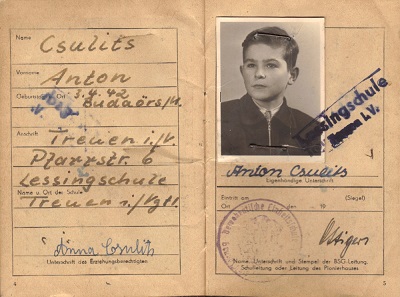 Name
Csulits
Vorname
Anton
Geburtstag Ort 3.4.42
Budaörs/U.
Anschrift Treuen i./V.
Pfarrstr. 6
Lessingschule
Name u. Ort der Schule
Treuen i./Vgtl.
Anna Csulits
Unterschrift des Erziehungsberechtigten
4
Lessingschule
i.V.
Anton Csulits
Eigenhändige Unterschrift
Eintritt am
Ort 19 (Siegel)
Name, Unterschrift und Stempel der BSG-Leitung,
Schulleitung oder Leitung des Pionierhauses
5